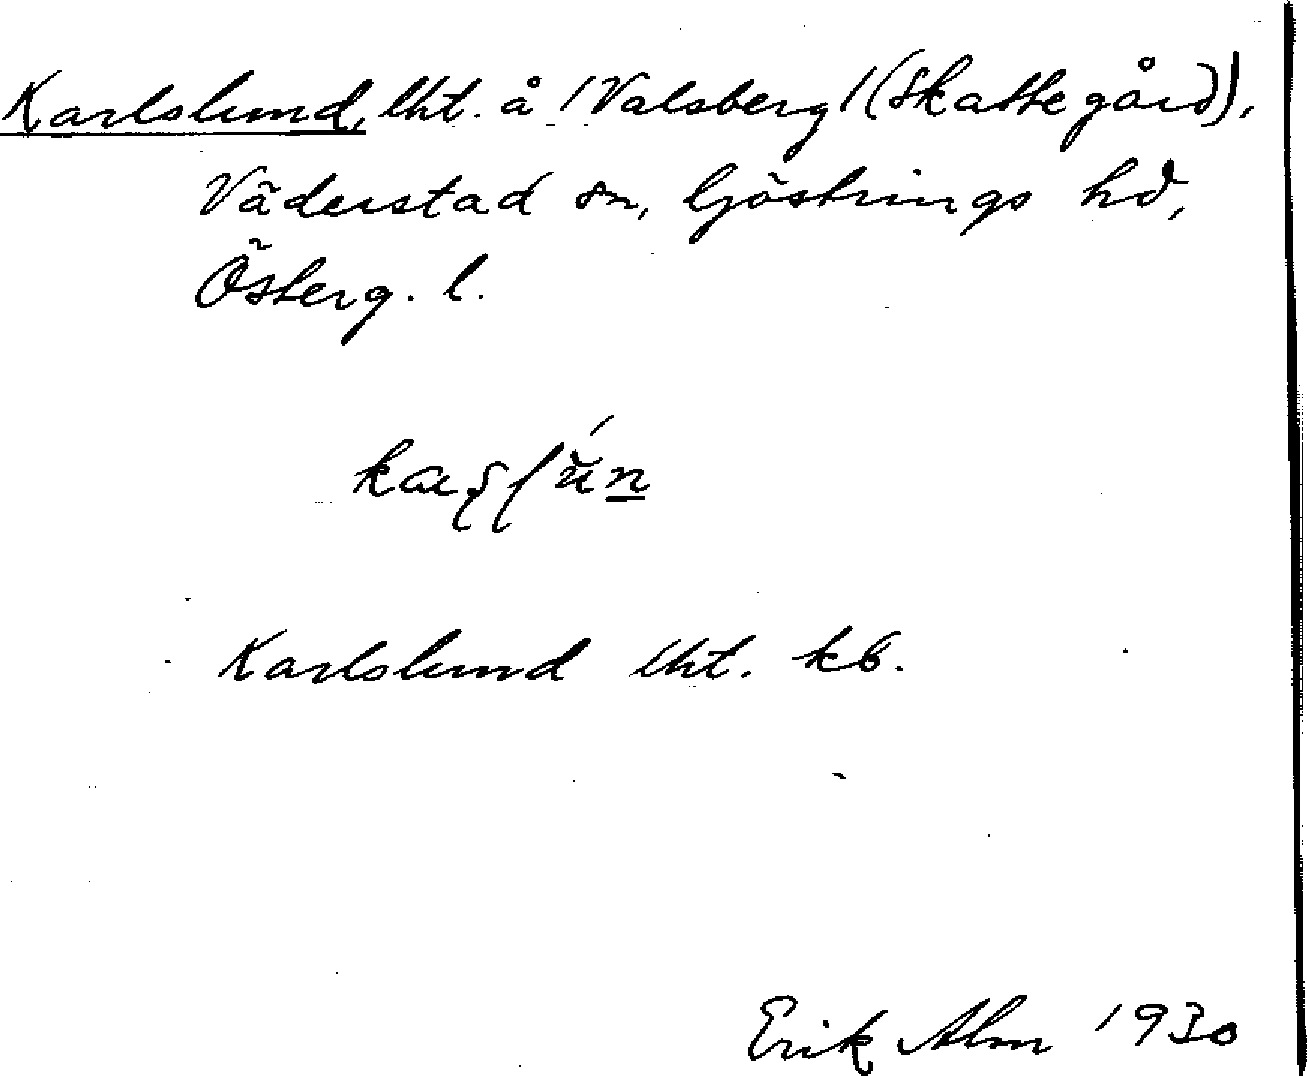 Karlslund, lht. å /Valsberg/(Skattegård),
Väderstad sn, Göstrings hd,
Österg. l.
Karlslund lht. kb.
Erik Alm 1930